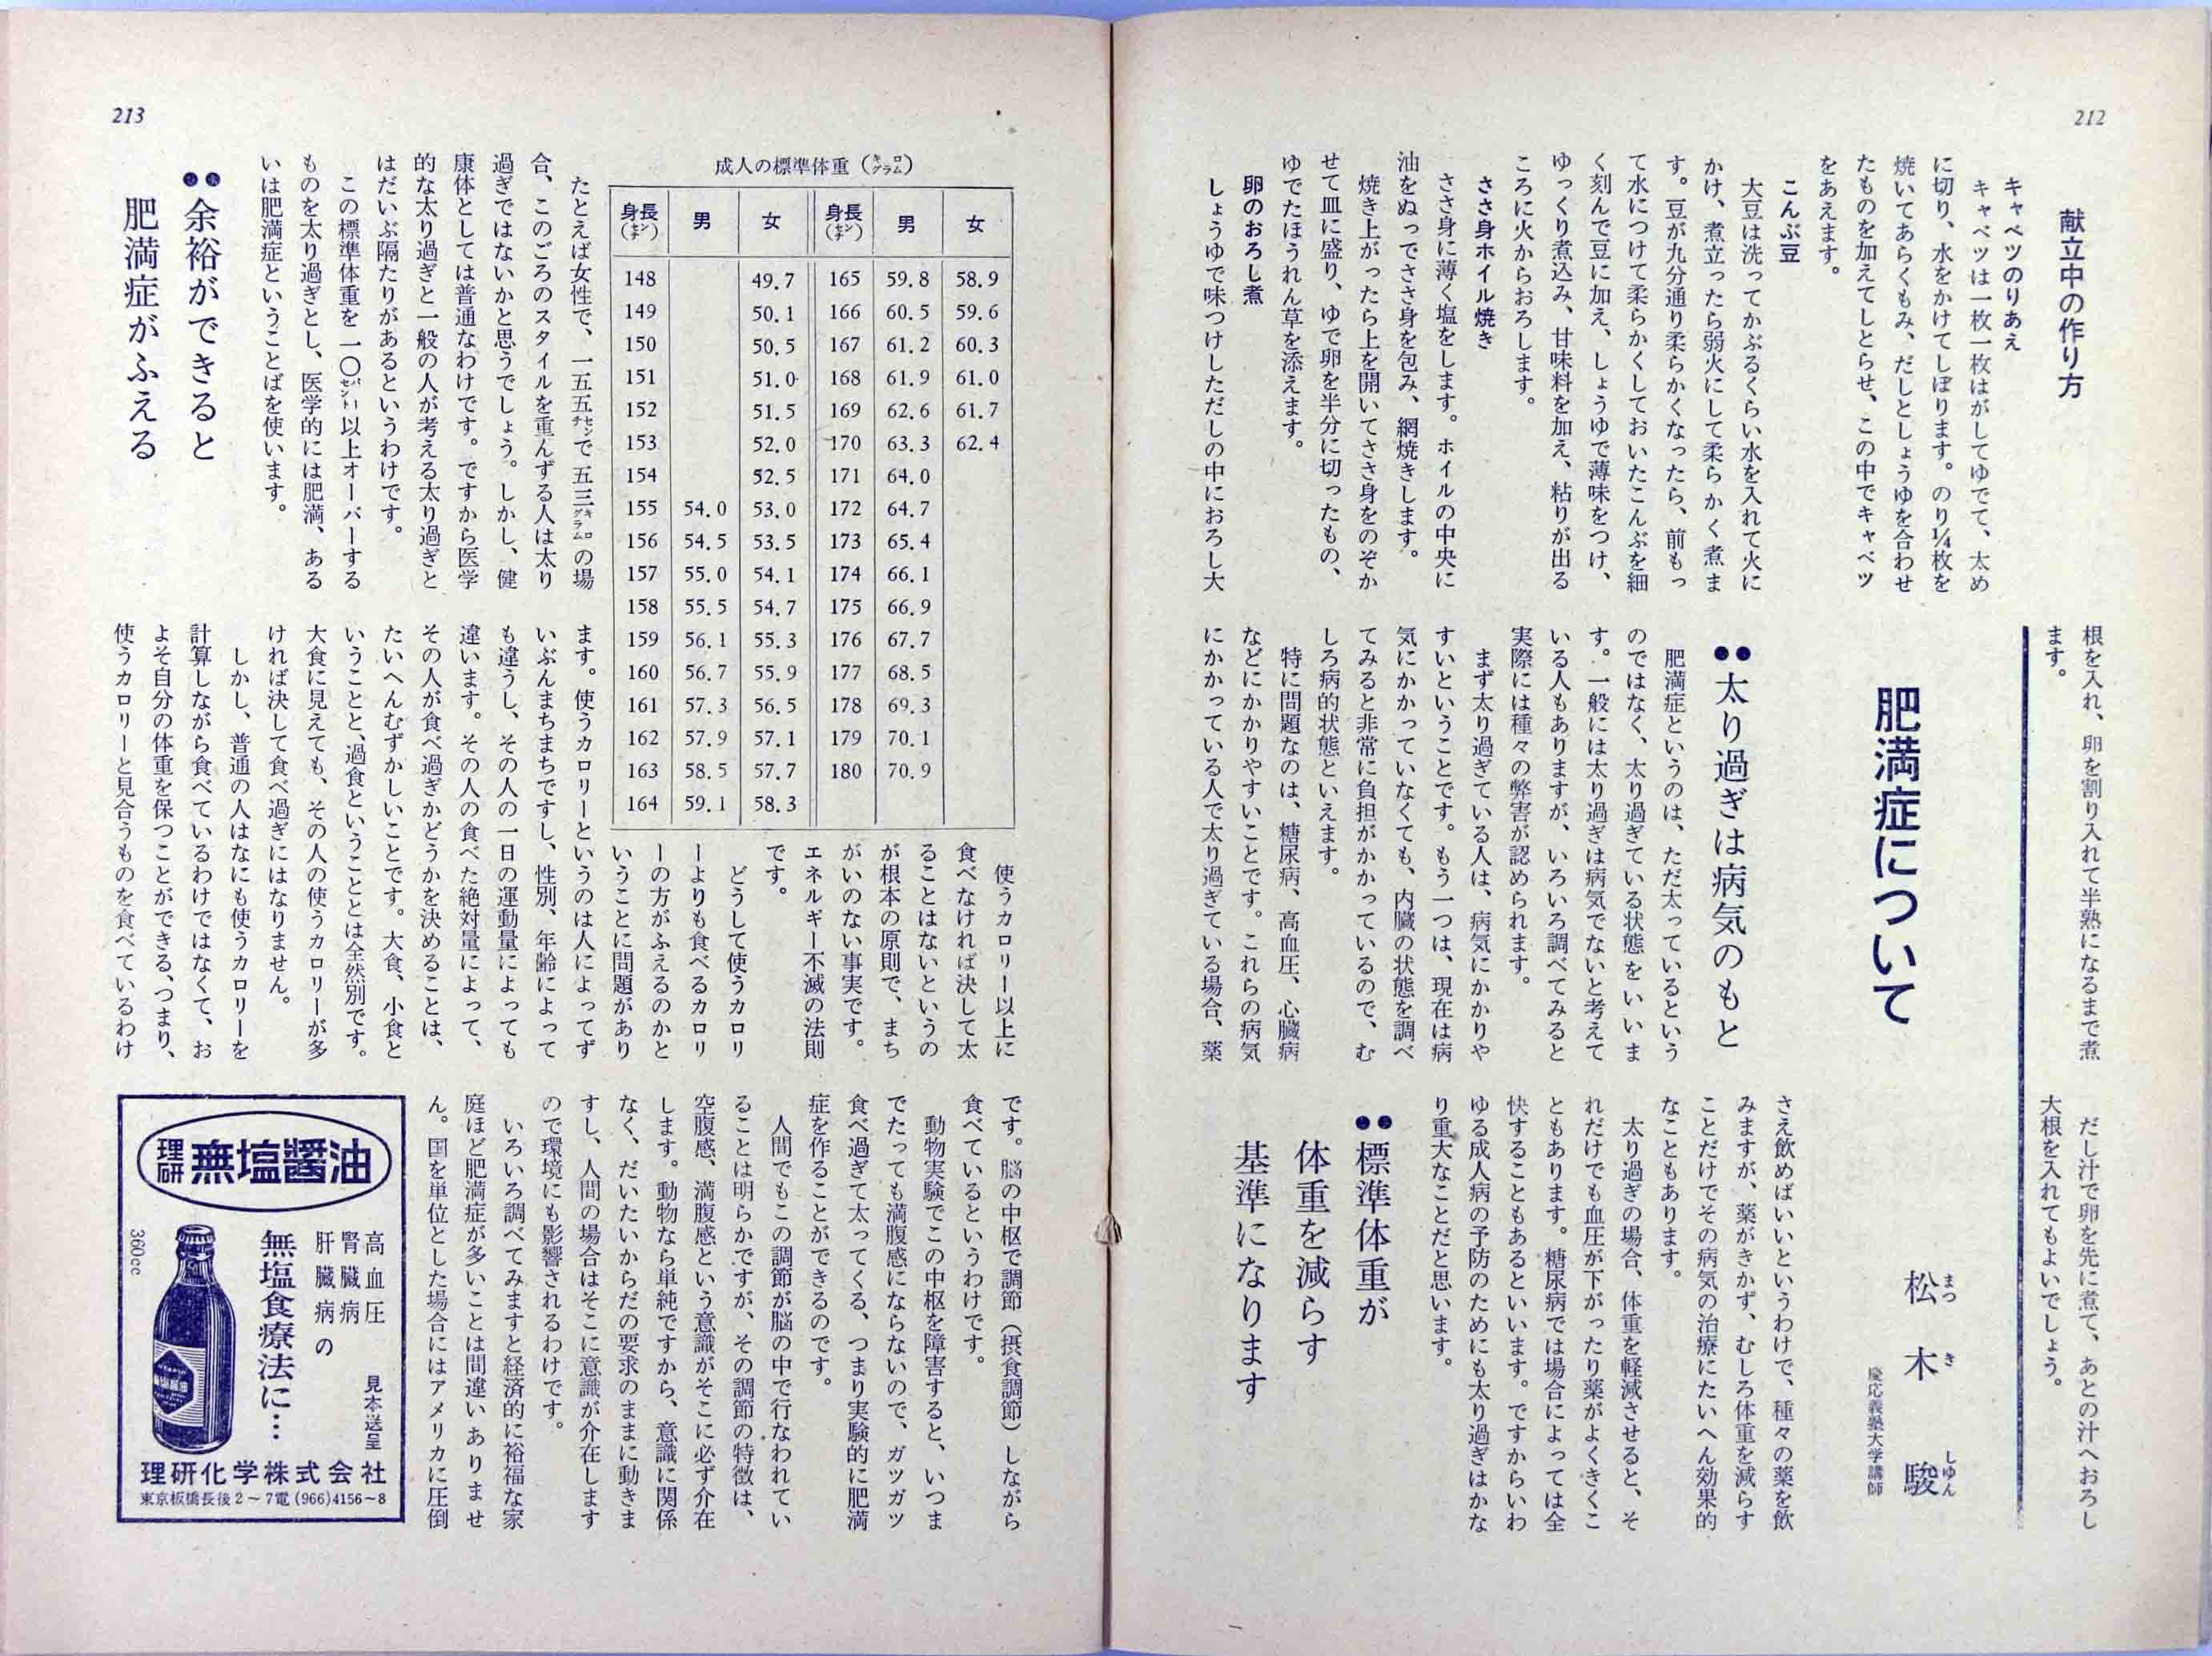 212
献立中の作り方
キャベツのりあえ
キャベツは一枚一枚はがしてゆでて、太め
に切り、水をかけてしぼります。のり¼枚を
焼いてあらくもみ、だしとしょうゆを合わせ
たものを加えてしとらせ、この中でキャベツ
をあえます。
こんぶ豆
大豆は洗ってかぶるくらい水を入れて火に
かけ、煮立ったら弱火にして柔らかく煮ま
す。豆が九分通り柔らかくなったら、前もっ
て水につけて柔らかくしておいたこんぶを細
く刻んで豆に加え、しょうゆで薄味をつけ、
ゆっくり煮込み、甘味料を加え、粘りが出る
ころに火からおろします。
ささ身ホイル焼き
ささ身に薄く塩をします。ホイルの中央に
油をぬってささ身を包み、網焼きします。
焼き上がったら上を開いてささ身をのぞか
せて皿に盛り、ゆで卵を半分に切ったもの、
ゆでたほうれん草を添えます。
卵のおろし煮
しょうゆで味つけしただしの中におろし大
根を入れ、卵を割り入れて半熟になるまで煮
ます。
だし汁で卵を先に煮て、あとの汁へおろし
大根を入れてもよいでしょう。
肥満症について
松木駿
まつきしゆん
慶応義塾大学講師
●●太り過ぎは病気のもと
肥満症というのは、ただ太っているという
のではなく、太り過ぎている状態をいいま
す。一般には太り過ぎは病気でないと考えて
いる人もありますが、いろいろ調べてみると
実際には種々の弊害が認められます。
まず太り過ぎている人は、病気にかかりや
すいということです。もう一つは、現在は病
気にかかっていなくても、内臓の状態を調べ
てみると非常に負担がかかっているので、む
しろ病的状態といえます。
特に問題なのは、糖尿病、高血圧、心臓病
などにかかりやすいことです。これらの病気
にかかっている人で太り過ぎている場合、薬
さえ飲めばいいというわけで、種々の薬を飲
みますが、薬がきかず、むしろ体重を減らす
ことだけでその病気の治療にたいへん効果的
なこともあります。
太り過ぎの場合、体重を軽減させると、そ
れだけでも血圧が下がったり薬がよくきくこ
ともあります。糖尿病では場合によっては全
快することもあるといいます。ですからいわ
ゆる成人病の予防のためにも太り過ぎはかな
り重大なことだと思います。
●●標準体重が
体重を減らす
基準になります
213
成人の標準体重（キログラム）
身長（センチ） 男 女 身長（センチ） 男 女
148 49.7 165 59.8 58.9
149 50.1 166 60.5 59.6
150 50.5 167 61.2 60.3
151 51.0 168 61.9 61.0
152 51.5 169 62.6 61.7
153 52.0 170 63.3 62.4
154 52.5 171 64.0
155 54.0 53.0 172 64.7
156 54.5 53.5 173 65.4
157 55.0 54.1 174 66.1
158 55.5 54.7 175 66.9
159 56.1 55.3 176 67.7
160 56.7 55.9 177 68.5
161 57.3 56.5 178 69.3
162 57.9 57.1 179 70.1
163 58.5 57.7 180 70.9
164 59.1 58.3
たとえば女性で、一五五センチで五三キログラムの場
合、このごろのスタイルを重んずる人は太り
過ぎではないかと思うでしょう。しかし、健
康体としては普通なわけです。ですから医学
的な太り過ぎと一般の人が考える太り過ぎと
はだいぶ隔たりがあるというわけです。
この標準体重を一〇パーセント以上オーバーする
ものを太り過ぎとし、医学的には肥満、ある
いは肥満症ということばを使います。
●●余裕ができると
肥満症がふえる
使うカロリー以上に
食べなければ決して太
ることはないというの
が根本の原則で、まち
がいのない事実です。
エネルギー不滅の法則
です。
どうして使うカロリ
ーよりも食べるカロリ
ーの方がふえるのかと
いうことに問題があり
ます。使うカロリーというのは人によってず
いぶんまちまちですし、性別、年齢によって
も違うし、その人の一日の運動量によっても
違います。その人の食べた絶対量によって、
その人が食べ過ぎかどうかを決めることは、
たいへんむずかしいことです。大食、小食と
いうことと、過食ということとは全然別です。
大食に見えても、その人の使うカロリーが多
ければ決して食べ過ぎにはなりません。
しかし、普通の人はなにも使うカロリーを
計算しながら食べているわけではなくて、お
よそ自分の体重を保つことができる、つまり、
使うカロリーと見合うものを食べているわけ
です。脳の中枢で調節（摂食調節）しながら
食べているというわけです。
動物実験でこの中枢を障害すると、いつま
でたっても満腹感にならないので、ガツガツ
食べ過ぎて太ってくる、つまり実験的に肥満
症を作ることができるのです。
人間でもこの調節が脳の中で行なわれてい
ることは明らかですが、その調節の特徴は、
空腹感、満腹感という意識がそこに必ず介在
します。動物なら単純ですから、意識に関係
なく、だいたいからだの要求のままに動きま
すし、人間の場合はそこに意識が介在します
ので環境にも影響されるわけです。
いろいろ調べてみますと経済的に裕福な家
庭ほど肥満症が多いことは間違いありませ
ん。国を単位とした場合にはアメリカに圧倒
理研 無塩醤油
高血圧
腎臓病
肝臓病の
無塩食療法に…
見本送呈
360cc
理研化学株式会社
東京板橋長後2～7電(966)4156～8